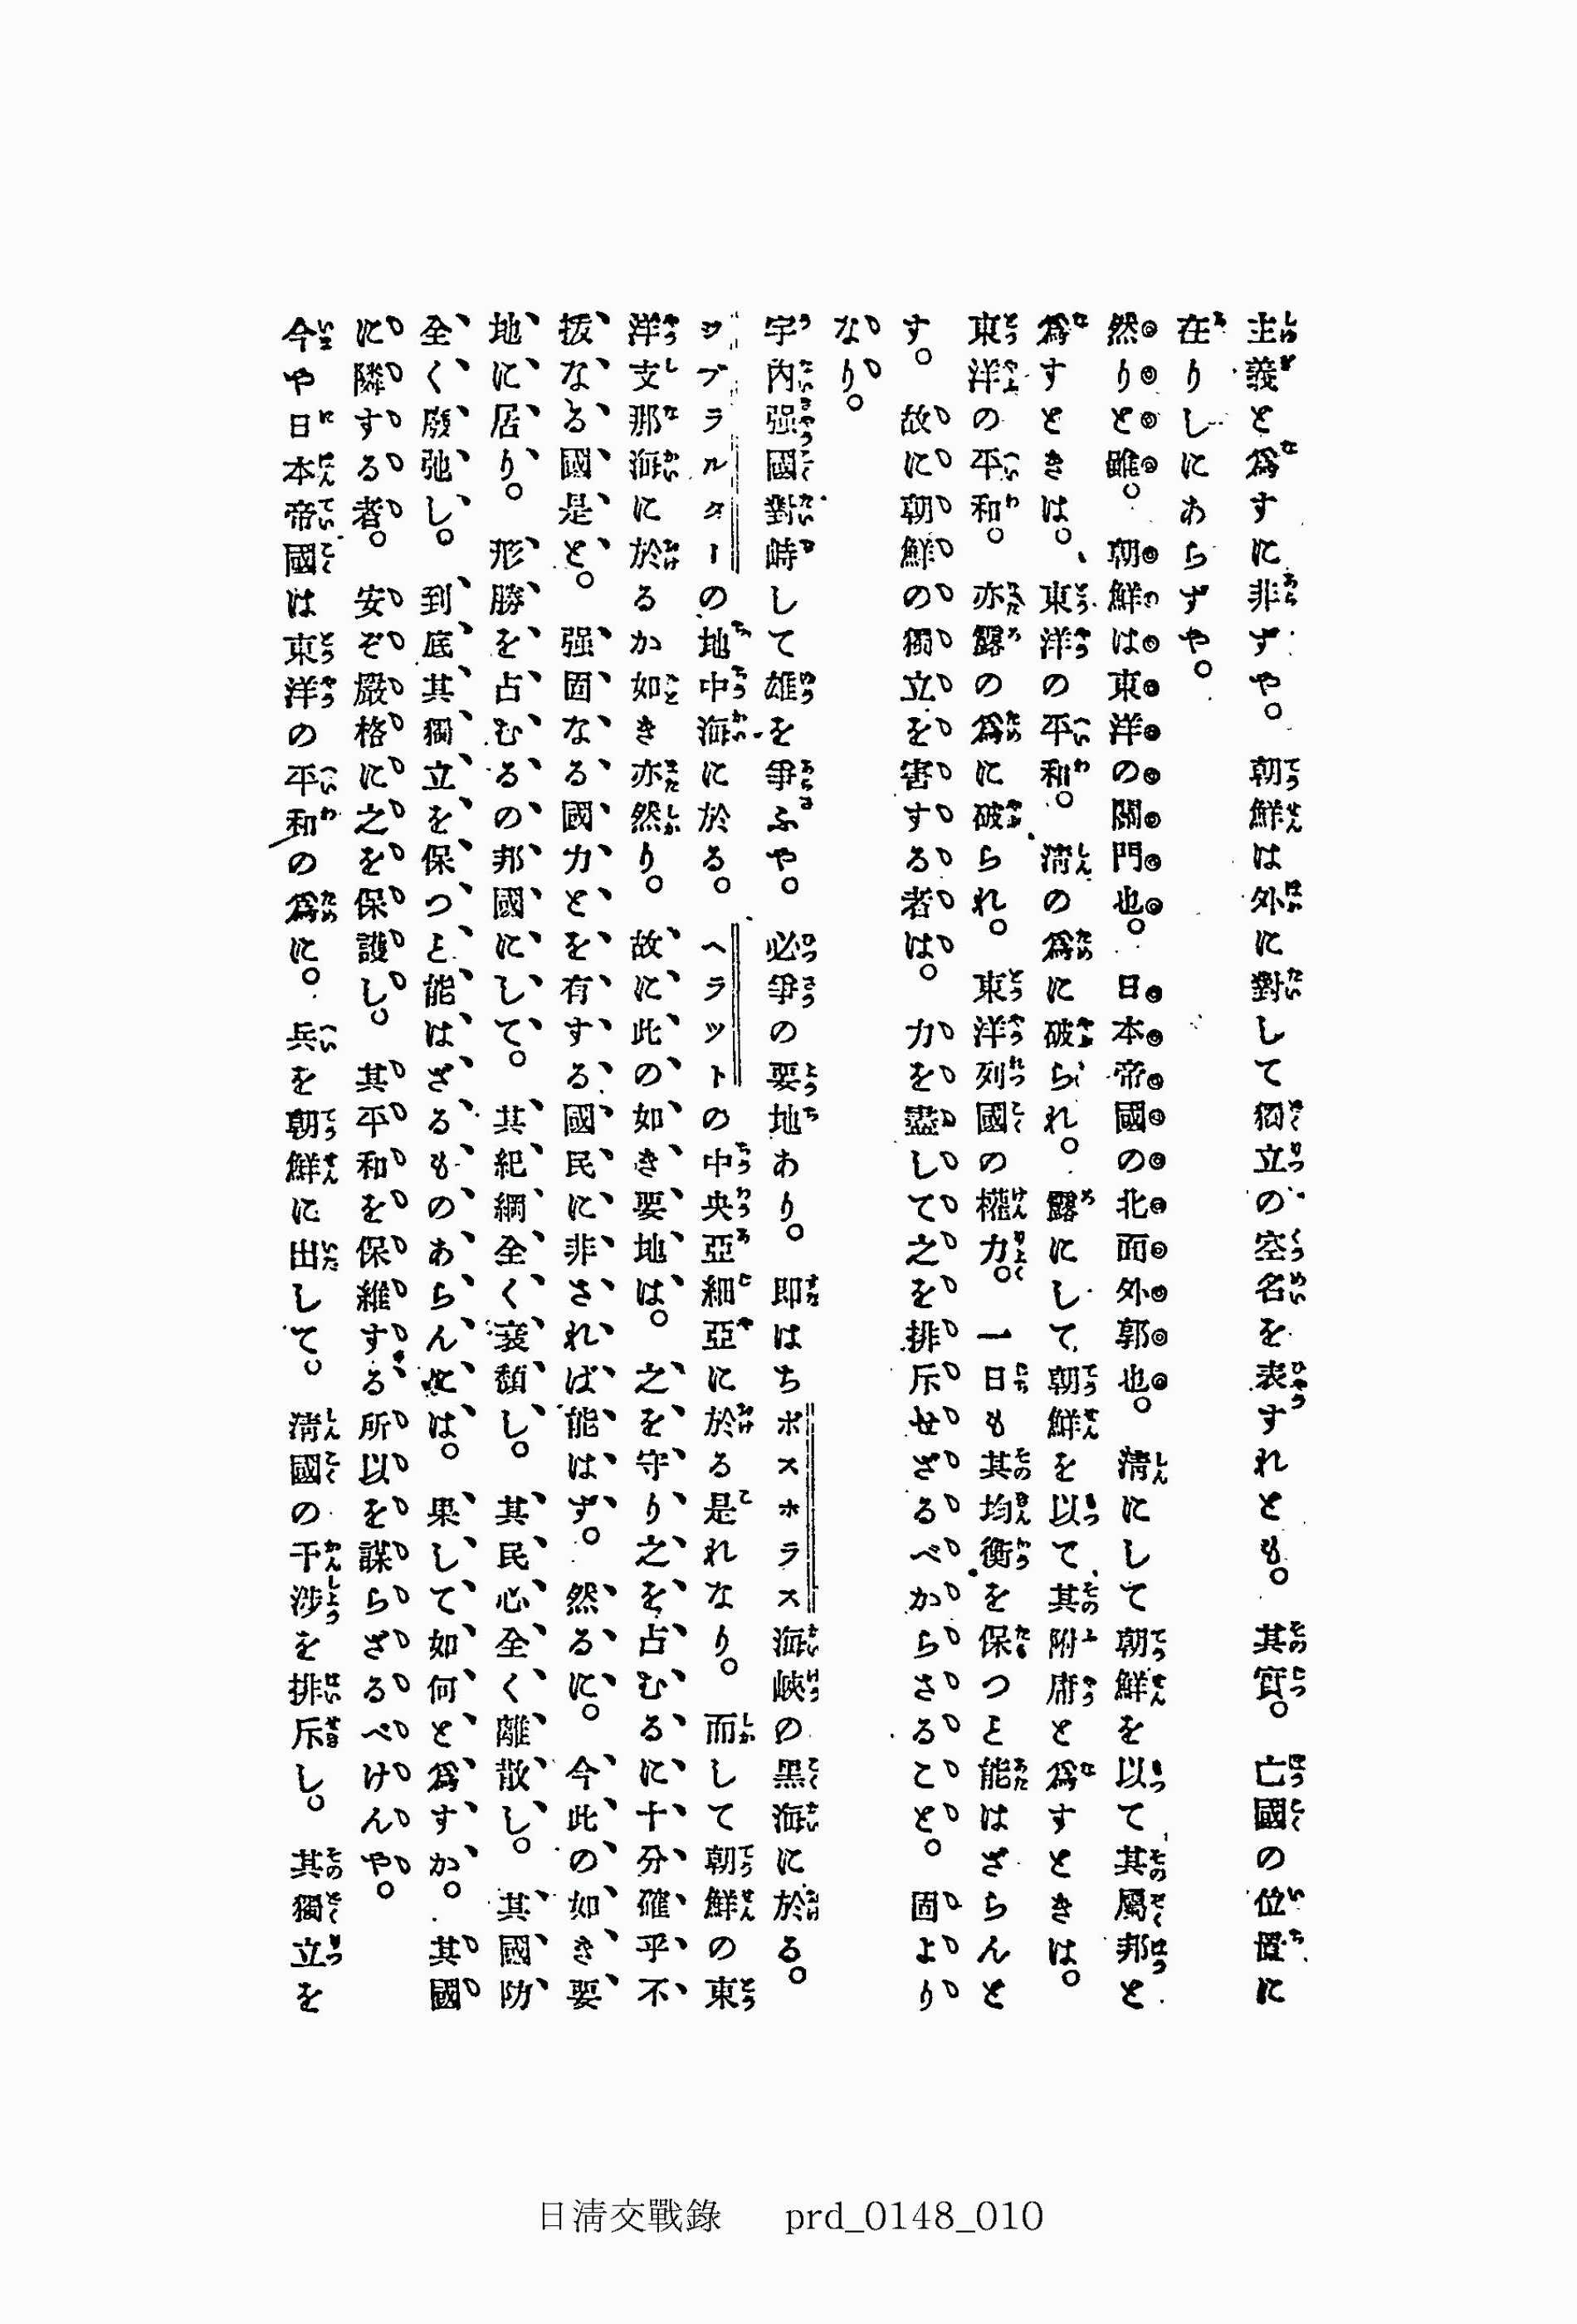 主義と爲すに非ずや。朝鮮は外に對して獨立の空名を表すれとも。其實。亡國の位置に
在りしにあらずや。
然りと雖。朝鮮は東洋の關門也。日本帝國の北面外郭也。淸にして朝鮮を以て其屬邦と
爲すときは。東洋の平和。淸の爲に破られ。露にして朝鮮を以て其附庸と爲すときは。
東洋の平和。亦露の爲に破られ。東洋列國の權力。一日も其均衡を保つと能はざらんと
す。故に朝鮮の獨立を害する者は。力を盡して之を排斥せざるべからさること。固より
なり。
宇内强國對峙して雄を爭ふや。必爭の要地あり。即はちボスホラス海峽の黑海に於る。
ヂブラルターの地中海に於る。ヘラットの中央亞細亞に於る是れなり。而して朝鮮の東
洋支那海に於るか如き亦然り。故に此の如き要地は。之を守り之を占むるに十分確乎不
拔なる國是と。强固なる國力とを有する國民に非されば能はず。然るに。今此の如き要
地に居り。形勝を占むるの邦國にして。其紀綱全く衰頽し。其民心全く離散し。其國防
全く廢弛し。到底其獨立を保つと能はざるものあらんには。果して如何と爲すか。其國
に隣する者。安ぞ嚴格に之を保護し。其平和を保維する所以を謀らざるべけんや。
今や日本帝國は東洋の平和の爲に。兵を朝鮮に出して。淸國の干涉を排斥し。其獨立を
日淸交戰錄 prd_0148_010